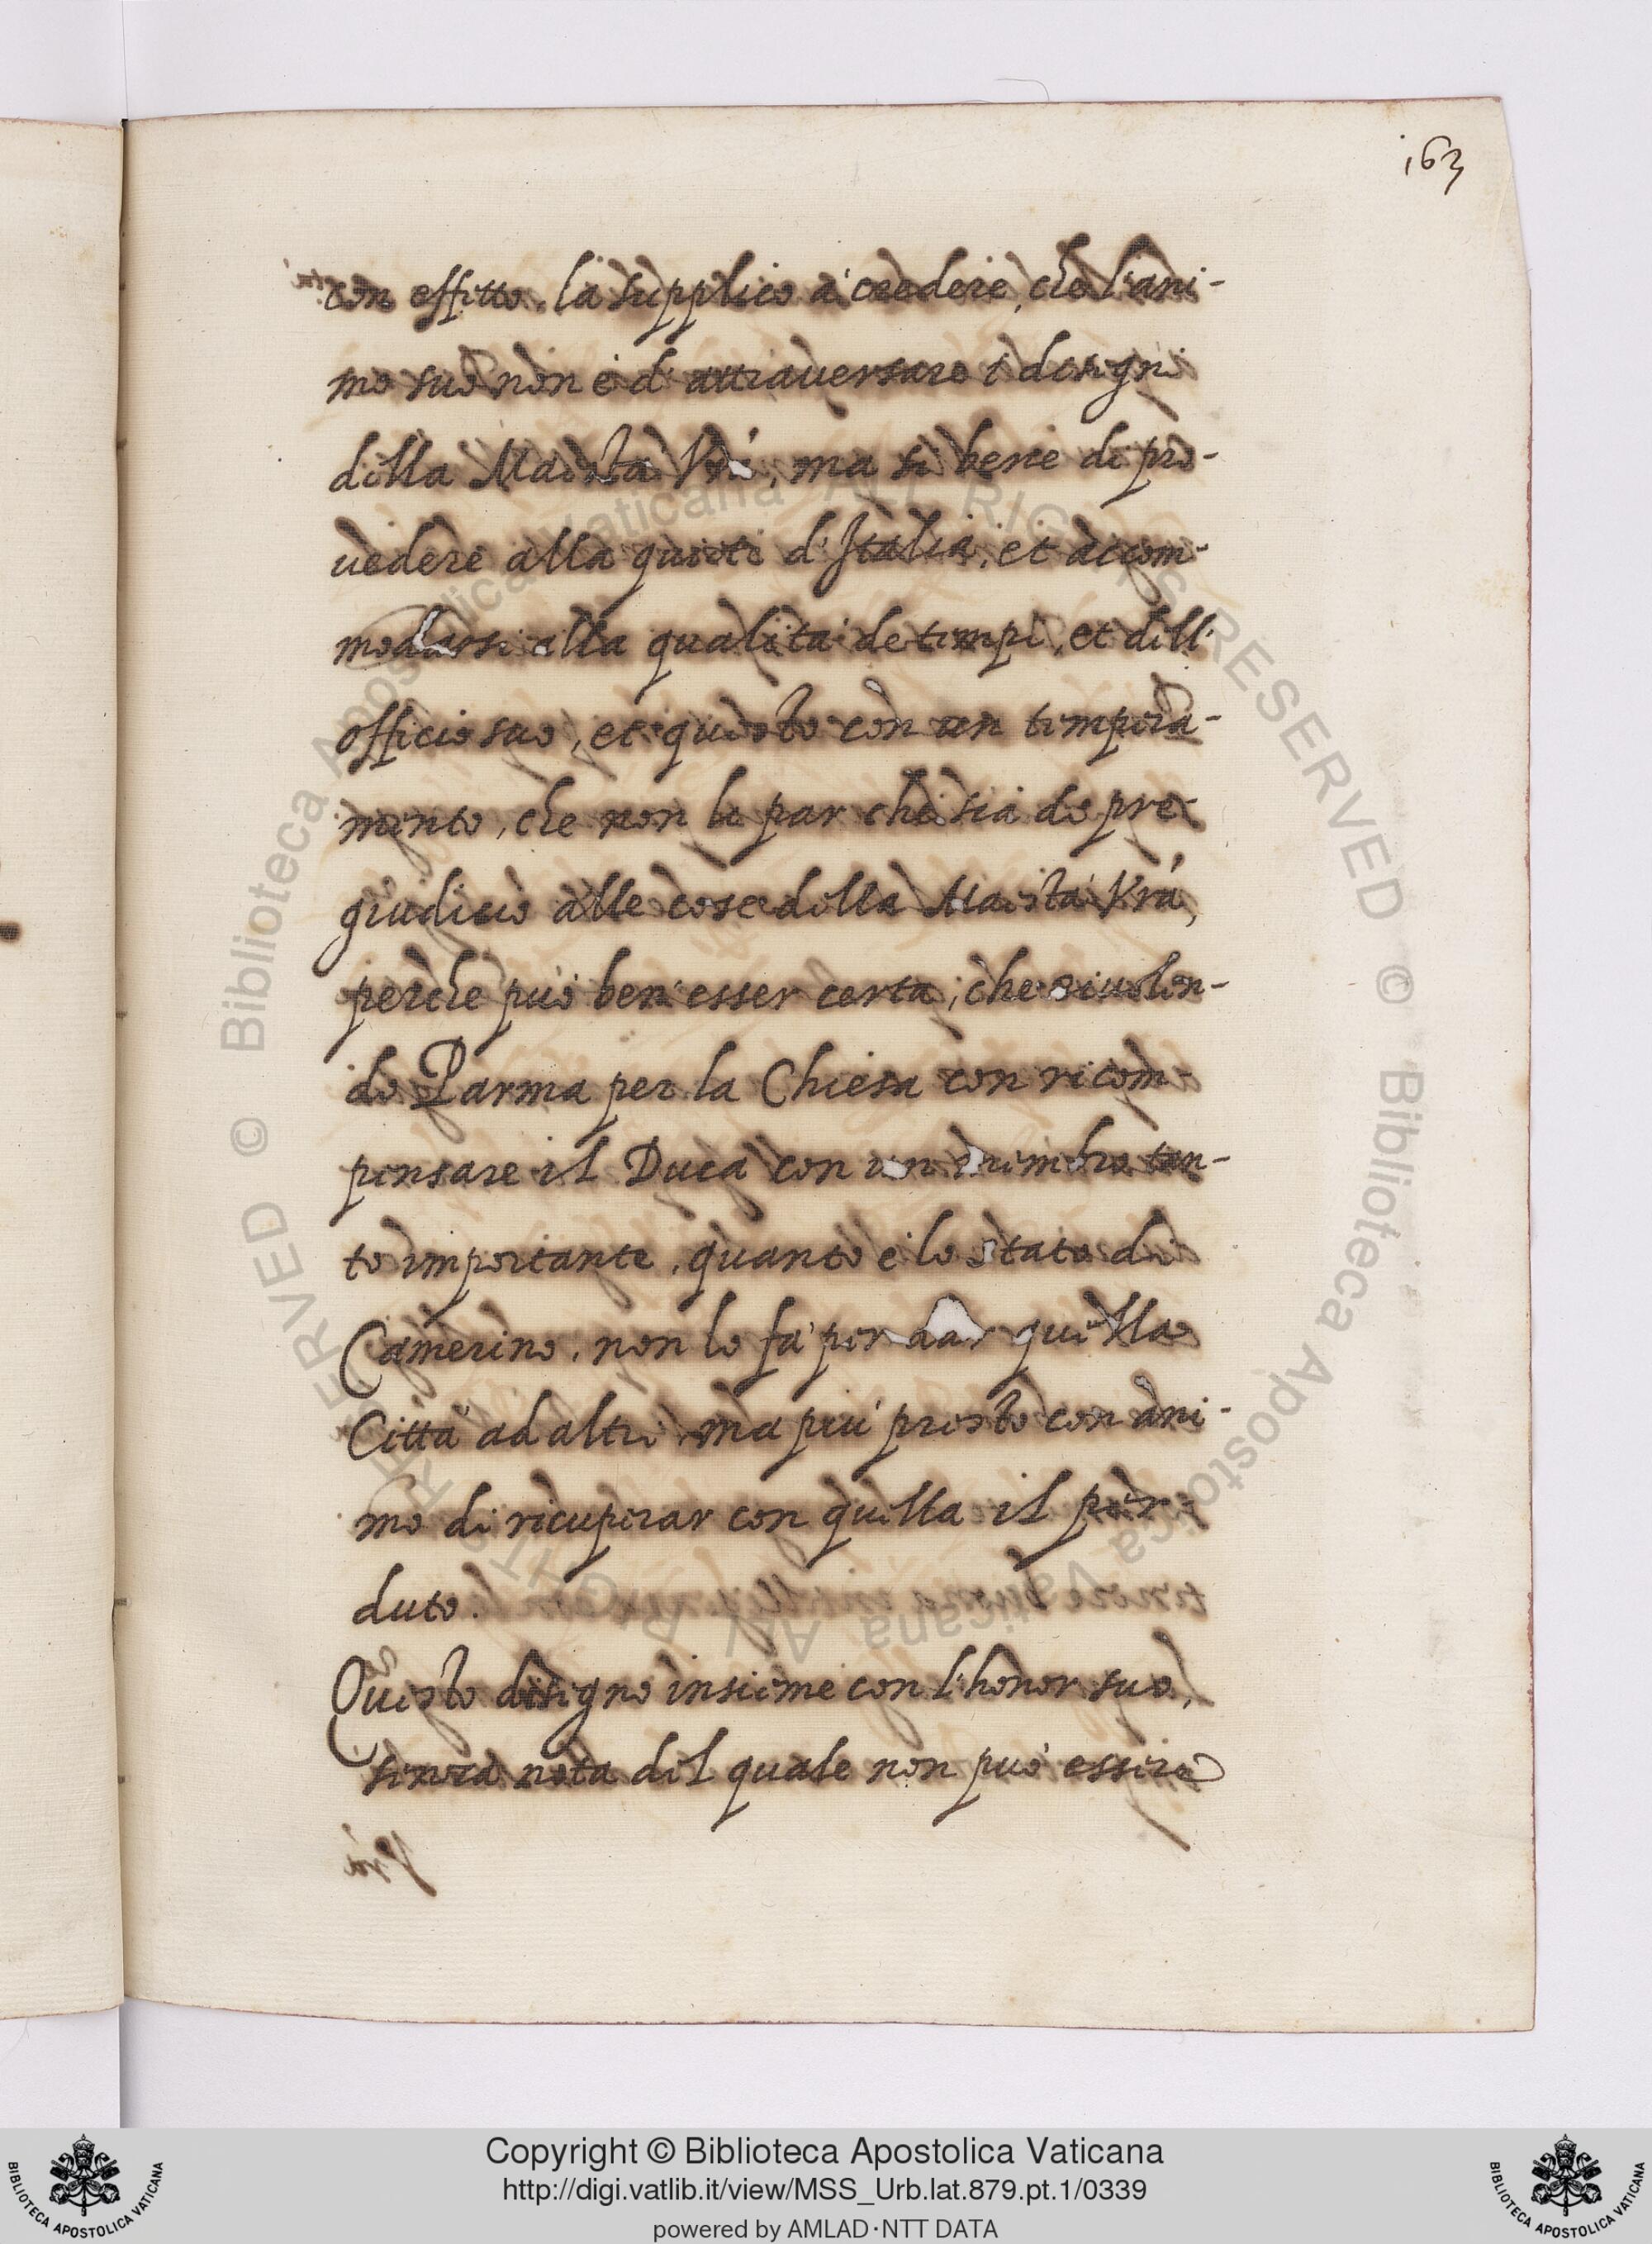 163
con effetto, la supplico à credere, che l'ani-
mo suo non è d'attraversare i disegni
della Maestà Vrà, ma si bene di pro-
vedere alla quiete d'Italia, et accom-
modarsi alla qualità de tempi, et dell'
officio suo, et questo con un tempera-
mento, che non le par che sia de pre-
giudicio alle cose della Maestà Vrà,
perche può ben'esser certa, che rivolen-
do Parma per la Chiesa con ricom-
pensare il Duca con un membro tan-
to importante, quanto è lo stato di
Camerino, non lo fà per dar quella
Città ad altri ma più presto con ani-
mo di ricuperar con quella il per-
duto.
Questo disegno insieme con l'honor suo,
senza nota del quale non può essere
© Biblioteca Apostolica Vaticana ALL RIGHTS RESERVED © Biblioteca Apostolica Vaticana ALL RIGHTS RESERVED
Copyright © Biblioteca Apostolica Vaticana
http://digi.vatlib.it/view/MSS_Urb.lat.879.pt.1/0339
powered by AMLAD·NTT DATA
BIBLIOTECA APOSTOLICA VATICANA
BIBLIOTECA APOSTOLICA VATICANA